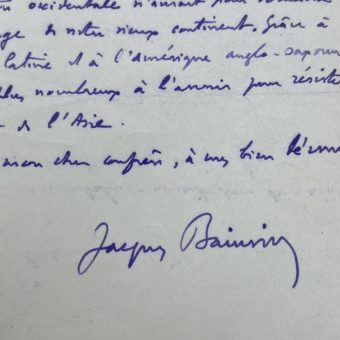 occidentale n'aurait pour
de notre vieux continent. Grâce à
latine et à l'Amérique anglo-saxonne
plus nombreux à l'avenir pour résiste
de l'Asie.
mon cher confrère, à mes bien
Jacques Bainville